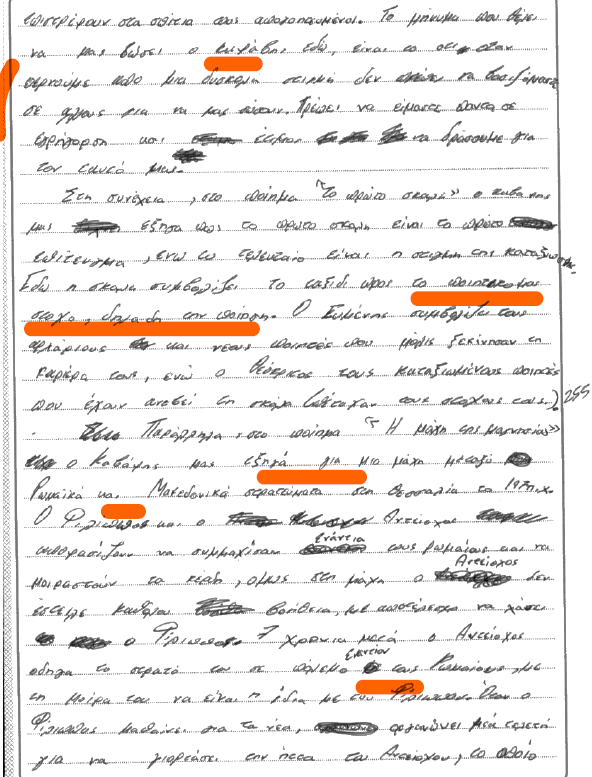 επιστρέφουν στα σπίτια τους απογοητευμένοι. Το μήνυμα που θέλει
να μας δώσει ο Καβάφης εδώ, είναι το ότι όταν
ερχούμε από μια δύσκολη στιγμή δεν πρέπει να βασιζόμαστε
σε άλλους για να μας σώσουν. Πρέπει να είμαστε πάντα σε
εγρήγορση και να δράσουμε για
τον εαυτό μας.
Στη συνέχεια, στο ποίημα "Το πρώτο σκαλί" ο Καβάφης
μας εξηγά πως το πρώτο σκαλί είναι το πρώτο
επίτευγμα, ενώ το τελευταίο είναι η στιγμή της καταξίωσης.
Εδώ η σκάλα συμβολίζει το ταξίδι προς το ποιητικό μας
στόχο, δηλαδή την ποίηση. Ο Ευμένης συμβολίζει τους
και νέους ποιητές που μόλις ξεκίνησαν τη
καριέρα τους, ενώ ο Θεόκριτος τους καταξιωμένους ποιητές
που έχουν ανεβεί τη σκάλα (πέτυχαν τους στόχους τους). 255
Παράλληλα, στο ποίημα "Η μάχη της Μαγνησίας"
ο Καβάφης μας εξηγά για μια μάχη μεταξύ
Ρωμαϊκά και Μακεδονικά στρατεύματα στη Θεσσαλία το 197π.χ.
Ο Φίλιππος και ο Αντίοχος
αποφασίζουν να συμμαχήσουν ενάντια τους ρωμαίους και να
μοιραστούν τα κέρδη, όμως στη μάχη ο Αντίοχος δεν
έστειλε καθόλου βοήθεια, με αποτέλεσμα να χάσει
ο Φίλιππος. 7 χρόνια μετά ο Αντίοχος
οδηγά το στρατό του σε πόλεμο εναντίον τους Ρωμαίους, με
τη μοίρα του να είναι η ίδια με του Φίλιππου. Όταν ο
Φίλιππας μαθαίνει για τα νέα, οργανώνει μια τελετή
για να γιορτάσει την ήττα του Αντίοχου, το οποίο